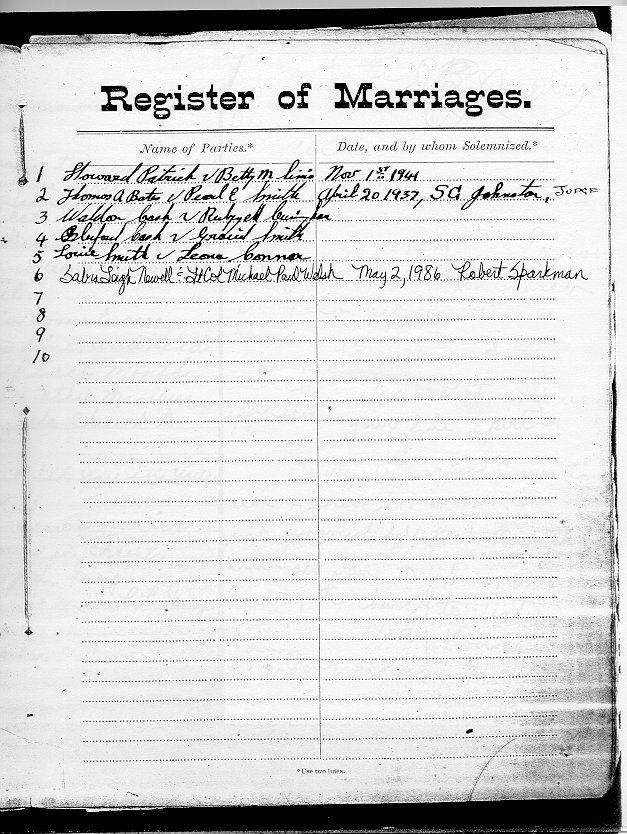 Register of Marriages.
Name of Parties.* Date, and by whom Solemnized.*
1 Howard Patrick v Betty M Nov 1st 1941
2 Thomas A Bates v Pearl E Smith April 20 1937, S.G. Johnston, Judge
3 Waldon Cash v
4 Cash v Smith
5 Louie Smith v Leona Connor
6 Leigh Newell & LtCol Michael Paul Walsh May 2, 1986 Robert Sparkman
7
8
9
10
*Use two lines.